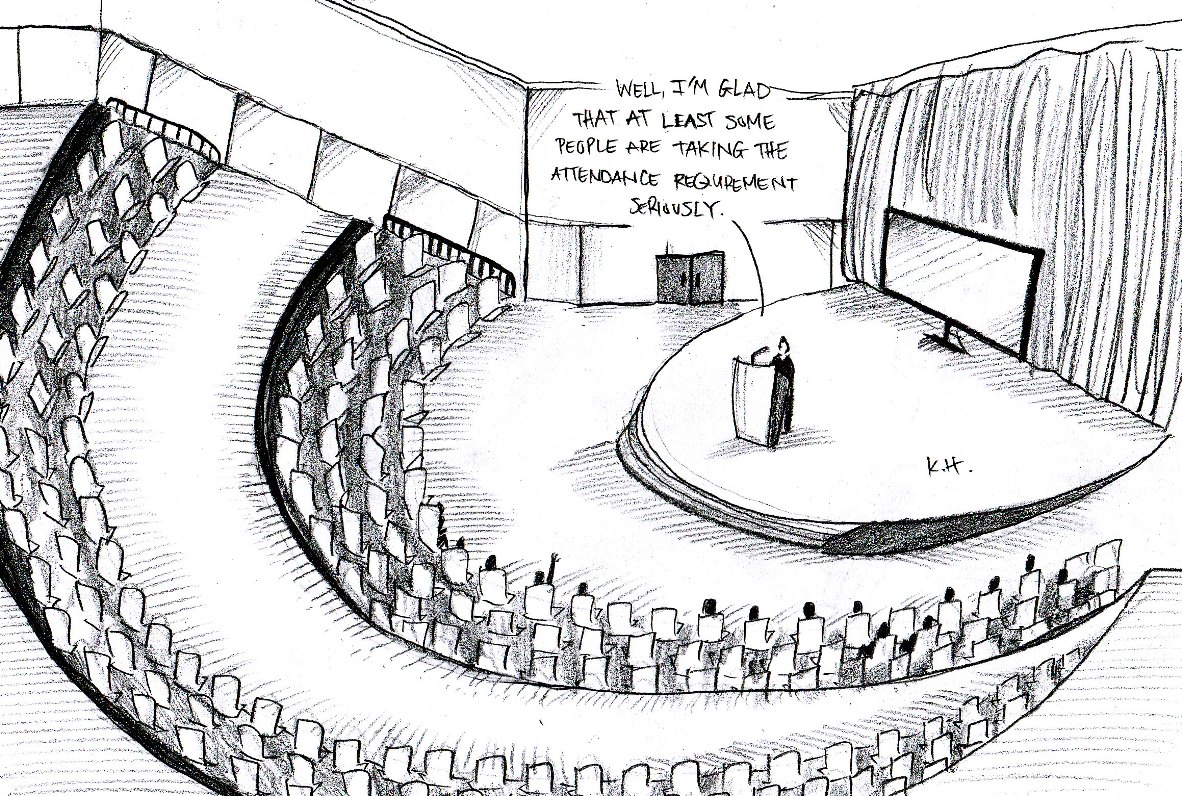 WELL, I'M GLAD
THAT AT LEAST SOME
PEOPLE ARE TAKING THE
ATTENDANCE REQUIREMENT
SERIOUSLY.
K.H.